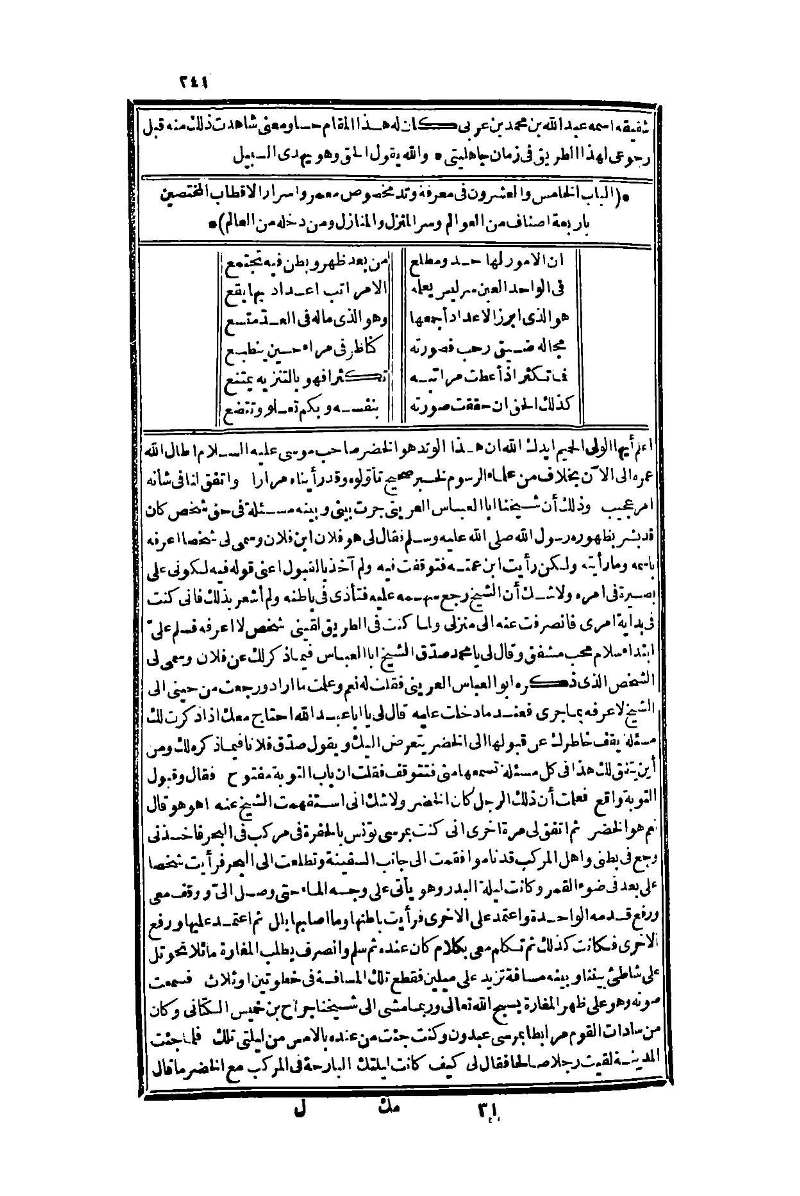 ٢٤١
شقيقه اسمه عبد الله بن محمد بن عربى كان له هذا المقام حسا ومعنى شاهدت ذلك منه قبل
رجوعى لهذا الطريق فى زمان جاهليتى * والله يقول الحق وهو يهدى السبيل
*(الباب الخامس والعشرون فى معرفة وتد مخصوص معمر واسرار الاقطاب المختصين
باربعة اصناف من العوالم وسر المنزل والمنازل ومن دخله من العالم)*
ان الامور لها حد ومطلع من بعد ظهر وبطن فيه تجتمع
فى الواحد العين سر ليس يعلمه الا مراتب اعداد بها يقع
هو الذى ابرز الاعداد أجمعها وهو الذى ماله فى العد متسع
مجاله ضيق رحب فصورته كناظر فى مراء حين ينطبع
فما تكثر اذ أعطت مراتبه تكثرا فهو بالتنزيه يمتنع
كذلك الحق ان حققت صورته بنفسه وبكم تعلو وتتضع
اعلم أيها الولى الحميم ايدك الله ان هذا الوتد هو الخضر صاحب موسى عليه السلام اطال الله
عمره الى الآن بخلاف من علماء الرسوم لخبر صحيح تأولوه وقد رأيناه مرارا واتفق لنا فى شأنه
امر عجيب وذلك أن شيخنا ابا العباس العرينى جرت بينى وبينه مسئلة فى حق شخص كان
قد بشر بظهوره رسول الله صلى الله عليه وسلم فقال لى هو فلان ابن فلان وسمى لى شخصا اعرفه
باسمه وما رأيته ولكن رأيت ابن عمته فتوقفت فيه ولم آخذ بالقبول اعنى قوله فيه لكونى على
بصيرة فى امره ولا شك أن الشيخ رجع سهمه عليه فتأذى فى باطنه ولم أشعر بذلك فانى كنت
فى بداية امرى فانصرفت عنه الى منزلى ولما كنت فى الطريق لقينى شخص لا اعرفه فسلم علىّ
ابتداء سلام محب مشفق وقال لى يا محمد صدّق الشيخ ابا العباس فيما ذكر لك عن فلان وسمى لى
الشخص الذى ذكره ابو العباس العرينى فقلت له نعم وعلمت ما اراد ورجعت من حينى الى
الشيخ لاعرفه بما جرى فعند ما دخلت عليه قال لى يا ابا عبد الله احتاج معك اذا ذكرت لك
مسئلة يقف خاطرك عن قبولها الى الخضر يتعرض اليك ويقول صدّق فلانا فيما ذكره لك ومن
أين يتفق لك هذا فى كل مسئلة تسمعها منى فتتوقف فقلت ان باب التوبة مفتوح فقال وقبول
التوبة واقع فعلمت أن ذلك الرجل كان الخضر ولا شك انى استفهمت الشيخ عنه اهو هو قال
نعم هو الخضر ثم اتفق لى مرة اخرى انى كنت بمرسى تونس بالحفرة فى مركب فى البحر فاخذنى
وجع فى بطنى واهل المركب قد ناموا فقمت الى جانب السفينة وتطلعت الى البحر فرأيت شخصا
على بعد فى ضوء القمر وكانت ليلة البدر وهو يأتى على وجه الماء حتى وصل الىّ ووقف معى
ورفع قدمه الواحدة واعتمد على الاخرى فرأيت باطنها وما اصابها بلل ثم اعتمد عليها ورفع
الاخرى فكانت كذلك ثم تكلم معى بكلام كان عنده ثم سلم وانصرف يطلب المغارة مائلا نحو تل
على شاطئ بيننا وبينه مسافة تزيد على ميلين فقطع تلك المسافة فى خطوتين او ثلاث فسمعت
صوته وهو على ظهر المغارة يسبح الله تعالى وربما مشى الى شيخنا جراح بن خميس الكتانى وكان
من سادات القوم مرابطا بمرسى عيدون وكنت جئت من عنده بالامس من ليلتى تلك فلما جئت
المدينة لقيت رجلا صالحا فقال لى كيف كانت ليلتك البارحة فى المركب مع الخضر ما قال
٣١ مك ل